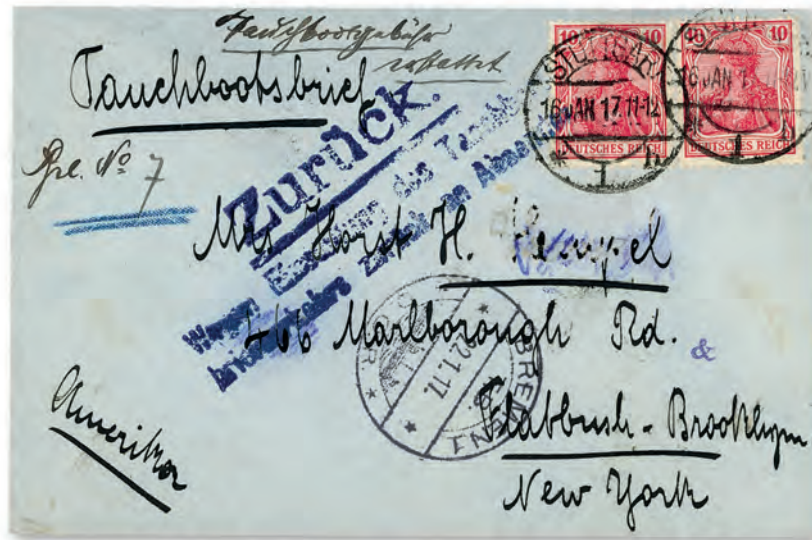 Tauchbootgebühr
erstattet
Tauchbootsbrief
10 10
DEUTSCHES REICH DEUTSCHES REICH
STUTTGART
16 JAN 17. 11-12
1
16 JAN
1
No 7
Zurück.
Wegen Einstellung des Tauchb
briefverkehrs zurück an Abse
Mrs Horst H. Hempel
466 Marlborough Rd.
&
BREMEN 1
22.1.17.
Flabbush - Brooklyn
New York
Amerika